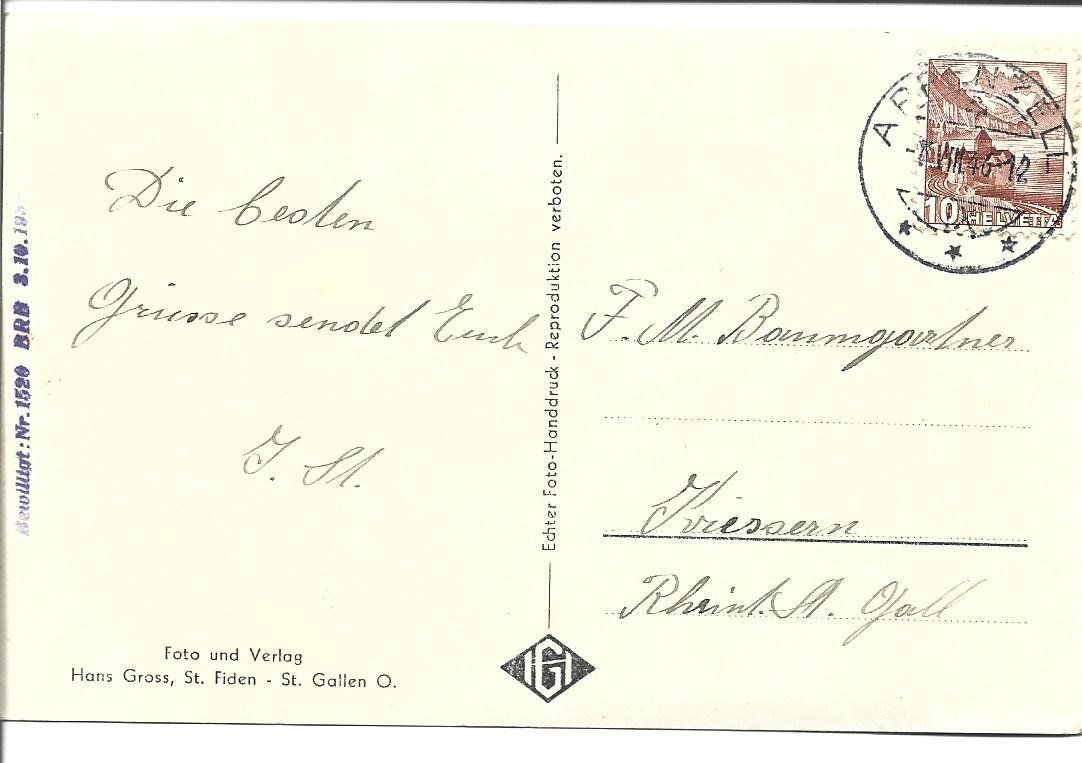 Die besten
Grüsse sendet Euch
J. St.
Bewilligt: Nr. 1520 BRB 3.10.19
Foto und Verlag
Hans Gross, St. Fiden - St. Gallen O.
Echter Foto-Handdruck - Reproduktion verboten.
HG
APPENZELL
VIII.46-12
10 HELVETIA
F. M. Baumgartner
Kriessern
Rheint. St. Gall